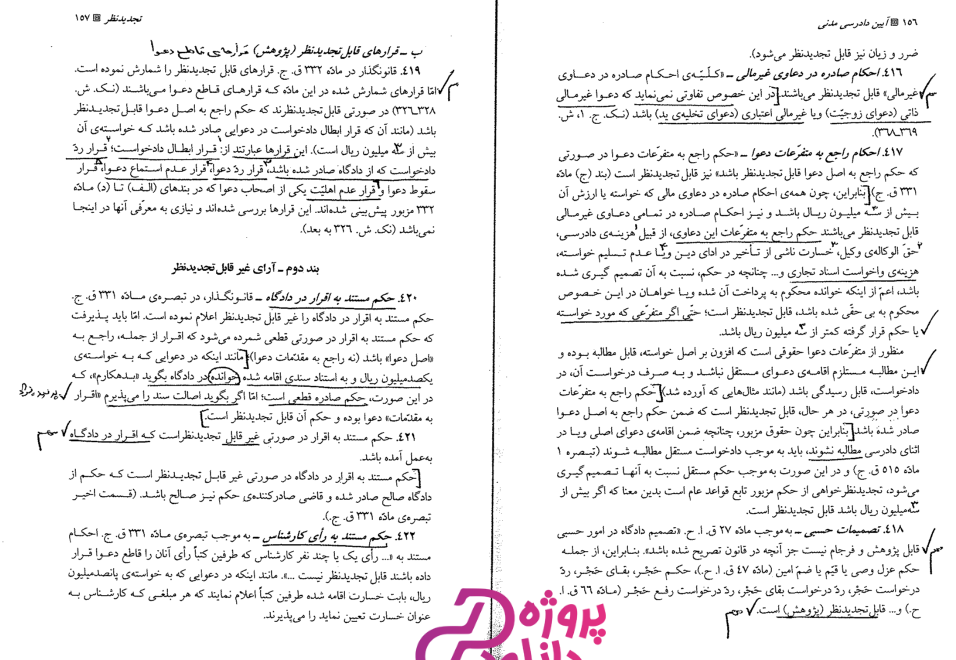 ۱۵۶ آیین دادرسی مدنی
ضرر و زیان نیز قابل تجدیدنظر می‌شود).
۴۱۶. احکام صادره در دعاوی غیرمالی ـ «کلّیّه‌ی احکام صادره در دعاوی
غیرمالی» قابل تجدیدنظر می‌باشند. در این خصوص تفاوتی نمی‌نماید که دعوا غیرمالی
ذاتی (دعوای زوجیّت) ویا غیرمالی اعتباری (دعوای تخلیه‌ی ید) باشد (نک. ج. ۱، ش.
۳۶۹ـ۳۶۸).
۴۱۷. احکام راجع به متفرّعات دعوا ـ «حکم راجع به متفرّعات دعوا در صورتی
که حکم راجع به اصل دعوا قابل تجدیدنظر باشد» نیز قابل تجدیدنظر است (بند (ج) مادّه
۳۳۱ ق. ج). بنابراین، چون همه‌ی احکام صادره در دعاوی مالی که خواسته یا ارزش آن
بیش از سه میلیون ریال باشد و نیز احکام صادره در تمامی دعاوی غیرمالی
قابل تجدیدنظر می‌باشند حکم راجع به متفرّعات این دعاوی، از قبیل هزینه‌ی دادرسی،
حقّ الوکاله‌ی وکیل، خسارت ناشی از تأخیر در ادای دین ویا عدم تسلیم خواسته،
هزینه‌ی واخواست اسناد تجاری و... چنانچه در حکم، نسبت به آن تصمیم گیری شده
باشد، اعمّ از اینکه خوانده محکوم به پرداخت آن شده ویا خواهان در این خصوص
محکوم به بی حقّی شده باشد، قابل تجدیدنظر است؛ حتّی اگر متفرّعی که مورد خواسته
یا حکم قرار گرفته کمتر از سه میلیون ریال باشد.
منظور از متفرّعات دعوا حقوقی است که افزون بر اصل خواسته، قابل مطالبه بوده و
این مطالبه مستلزم اقامه‌ی دعوای مستقل نباشد و به صرف درخواست آن، در
دادخواست، قابل رسیدگی باشد (مانند مثال‌هایی که آورده شد). حکم راجع به متفرّعات
دعوا در صورتی، در هر حال، قابل تجدیدنظر است که ضمن حکم راجع به اصل دعوا
صادر شده باشد. بنابراین چون حقوق مزبور، چنانچه ضمن اقامه‌ی دعوای اصلی ویا در
اثنای دادرسی مطالبه نشوند، باید به موجب دادخواست مستقل مطالبه شوند (تبصره ۱
مادّه ۵۱۵ ق. ج) و در این صورت به‌موجب حکم مستقل نسبت به آنها تصمیم‌گیری
می‌شود، تجدیدنظرخواهی از حکم مزبور تابع قواعد عام است بدین معنا که اگر بیش از
سه‌میلیون ریال باشد قابل تجدیدنظر است.
۴۱۸. تصمیمات حسبی ـ به‌موجب مادّه ۲۷ ق. ا. ح. «تصمیم دادگاه در امور حسبی
قابل پژوهش و فرجام نیست جز آنچه در قانون تصریح شده باشد». بنابراین، از جمله
حکم عزل وصی یا قیّم یا ضمّ امین (مادّه ۴۷ ق. ا. ح.)، حکم حَجْر، بقای حَجْر، ردّ
درخواست حَجر، ردّ درخواست بقای حَجْر، ردّ درخواست رفع حَجْر (مادّه ۶۶ ق. ا.
ح.) و... قابل‌تجدیدنظر (پژوهش) است.
مهم
تجدیدنظر ۱۵۷
ب ـ قرارهای قابل تجدیدنظر (پژوهش) قرارهای قاطع دعوا
۴۱۹. قانونگذار در مادّه ۳۳۲ ق. ج. قرارهای قابل تجدیدنظر را شمارش نموده است.
امّا قرارهای شمارش شده در این مادّه که قرارهای قاطع دعوا می‌باشند (نک. ش.
۳۲۸ـ۳۲۶) در صورتی قابل تجدیدنظرند که حکم راجع به اصل دعوا قابل‌تجدیدنظر
باشد (مانند آن که قرار ابطال دادخواست در دعوایی صادر شده باشد که خواسته‌ی آن
بیش از سه میلیون ریال است). این قرارها عبارتند از: قرار ابطال دادخواست؛ قرار ردّ
دادخواست که از دادگاه صادر شده باشد، قرار ردّ دعوا، قرار عدم استماع دعوا، قرار
سقوط دعوا و قرار عدم اهلیّت یکی از اصحاب دعوا که در بندهای (الف) تا (د) مادّه
۳۳۲ مزبور پیش‌بینی شده‌اند. این قرارها بررسی شده‌اند و نیازی به معرّفی آنها در اینجا
نمی‌باشد (نک. ش. ۳۲۶ به بعد).
بند دوم ـ آرای غیر قابل‌تجدیدنظر
۴۲۰. حکم مستند به اقرار در دادگاه ـ قانونگذار، در تبصره‌ی مادّه ۳۳۱ ق. ج.
حکم مستند به اقرار در دادگاه را غیر قابل تجدیدنظر اعلام نموده است. امّا باید پذیرفت
که حکم مستند به اقرار در صورتی قطعی شمرده می‌شود که اقرار از جمله، راجع به
«اصل دعوا» باشد (نه راجع به مقدّمات دعوا)؛ مانند اینکه در دعوایی که به خواسته‌ی
یکصدمیلیون ریال و به استناد سندی اقامه شده خوانده در دادگاه بگوید «بدهکارم»، که
در این صورت، حکم صادره قطعی است؛ امّا اگر بگوید اصالت سند را می‌پذیرم «اقرار
به مقدّمات» دعوا بوده و حکم آن قابل تجدیدنظر است.
۴۲۱. حکم مستند به اقرار در صورتی غیر قابل تجدیدنظراست که اقرار در دادگاه
به‌عمل آمده باشد.
مهم
حکم مستند به اقرار در دادگاه در صورتی غیر قابل تجدیدنظر است که حکم از
دادگاه صالح صادر شده و قاضی صادرکننده‌ی حکم نیز صالح باشد. (قسمت اخیر
تبصره‌ی مادّه ۳۳۱ ق. ج.).
۴۲۲. حکم مستند به رأی کارشناس ـ به موجب تبصره‌ی مادّه ۳۳۱ ق. ج. احکام
مستند به «... رأی یک یا چند نفر کارشناس که طرفین کتباً رأی آنان را قاطع دعوا قرار
داده باشند قابل تجدیدنظر نیست ...». مانند اینکه در دعوایی که به خواسته‌ی پانصدمیلیون
ریال، بابت خسارت اقامه شده طرفین کتباً اعلام نمایند که هر مبلغی که کارشناس به
عنوان خسارت تعیین نماید را می‌پذیرند.
پروژه
دانلود